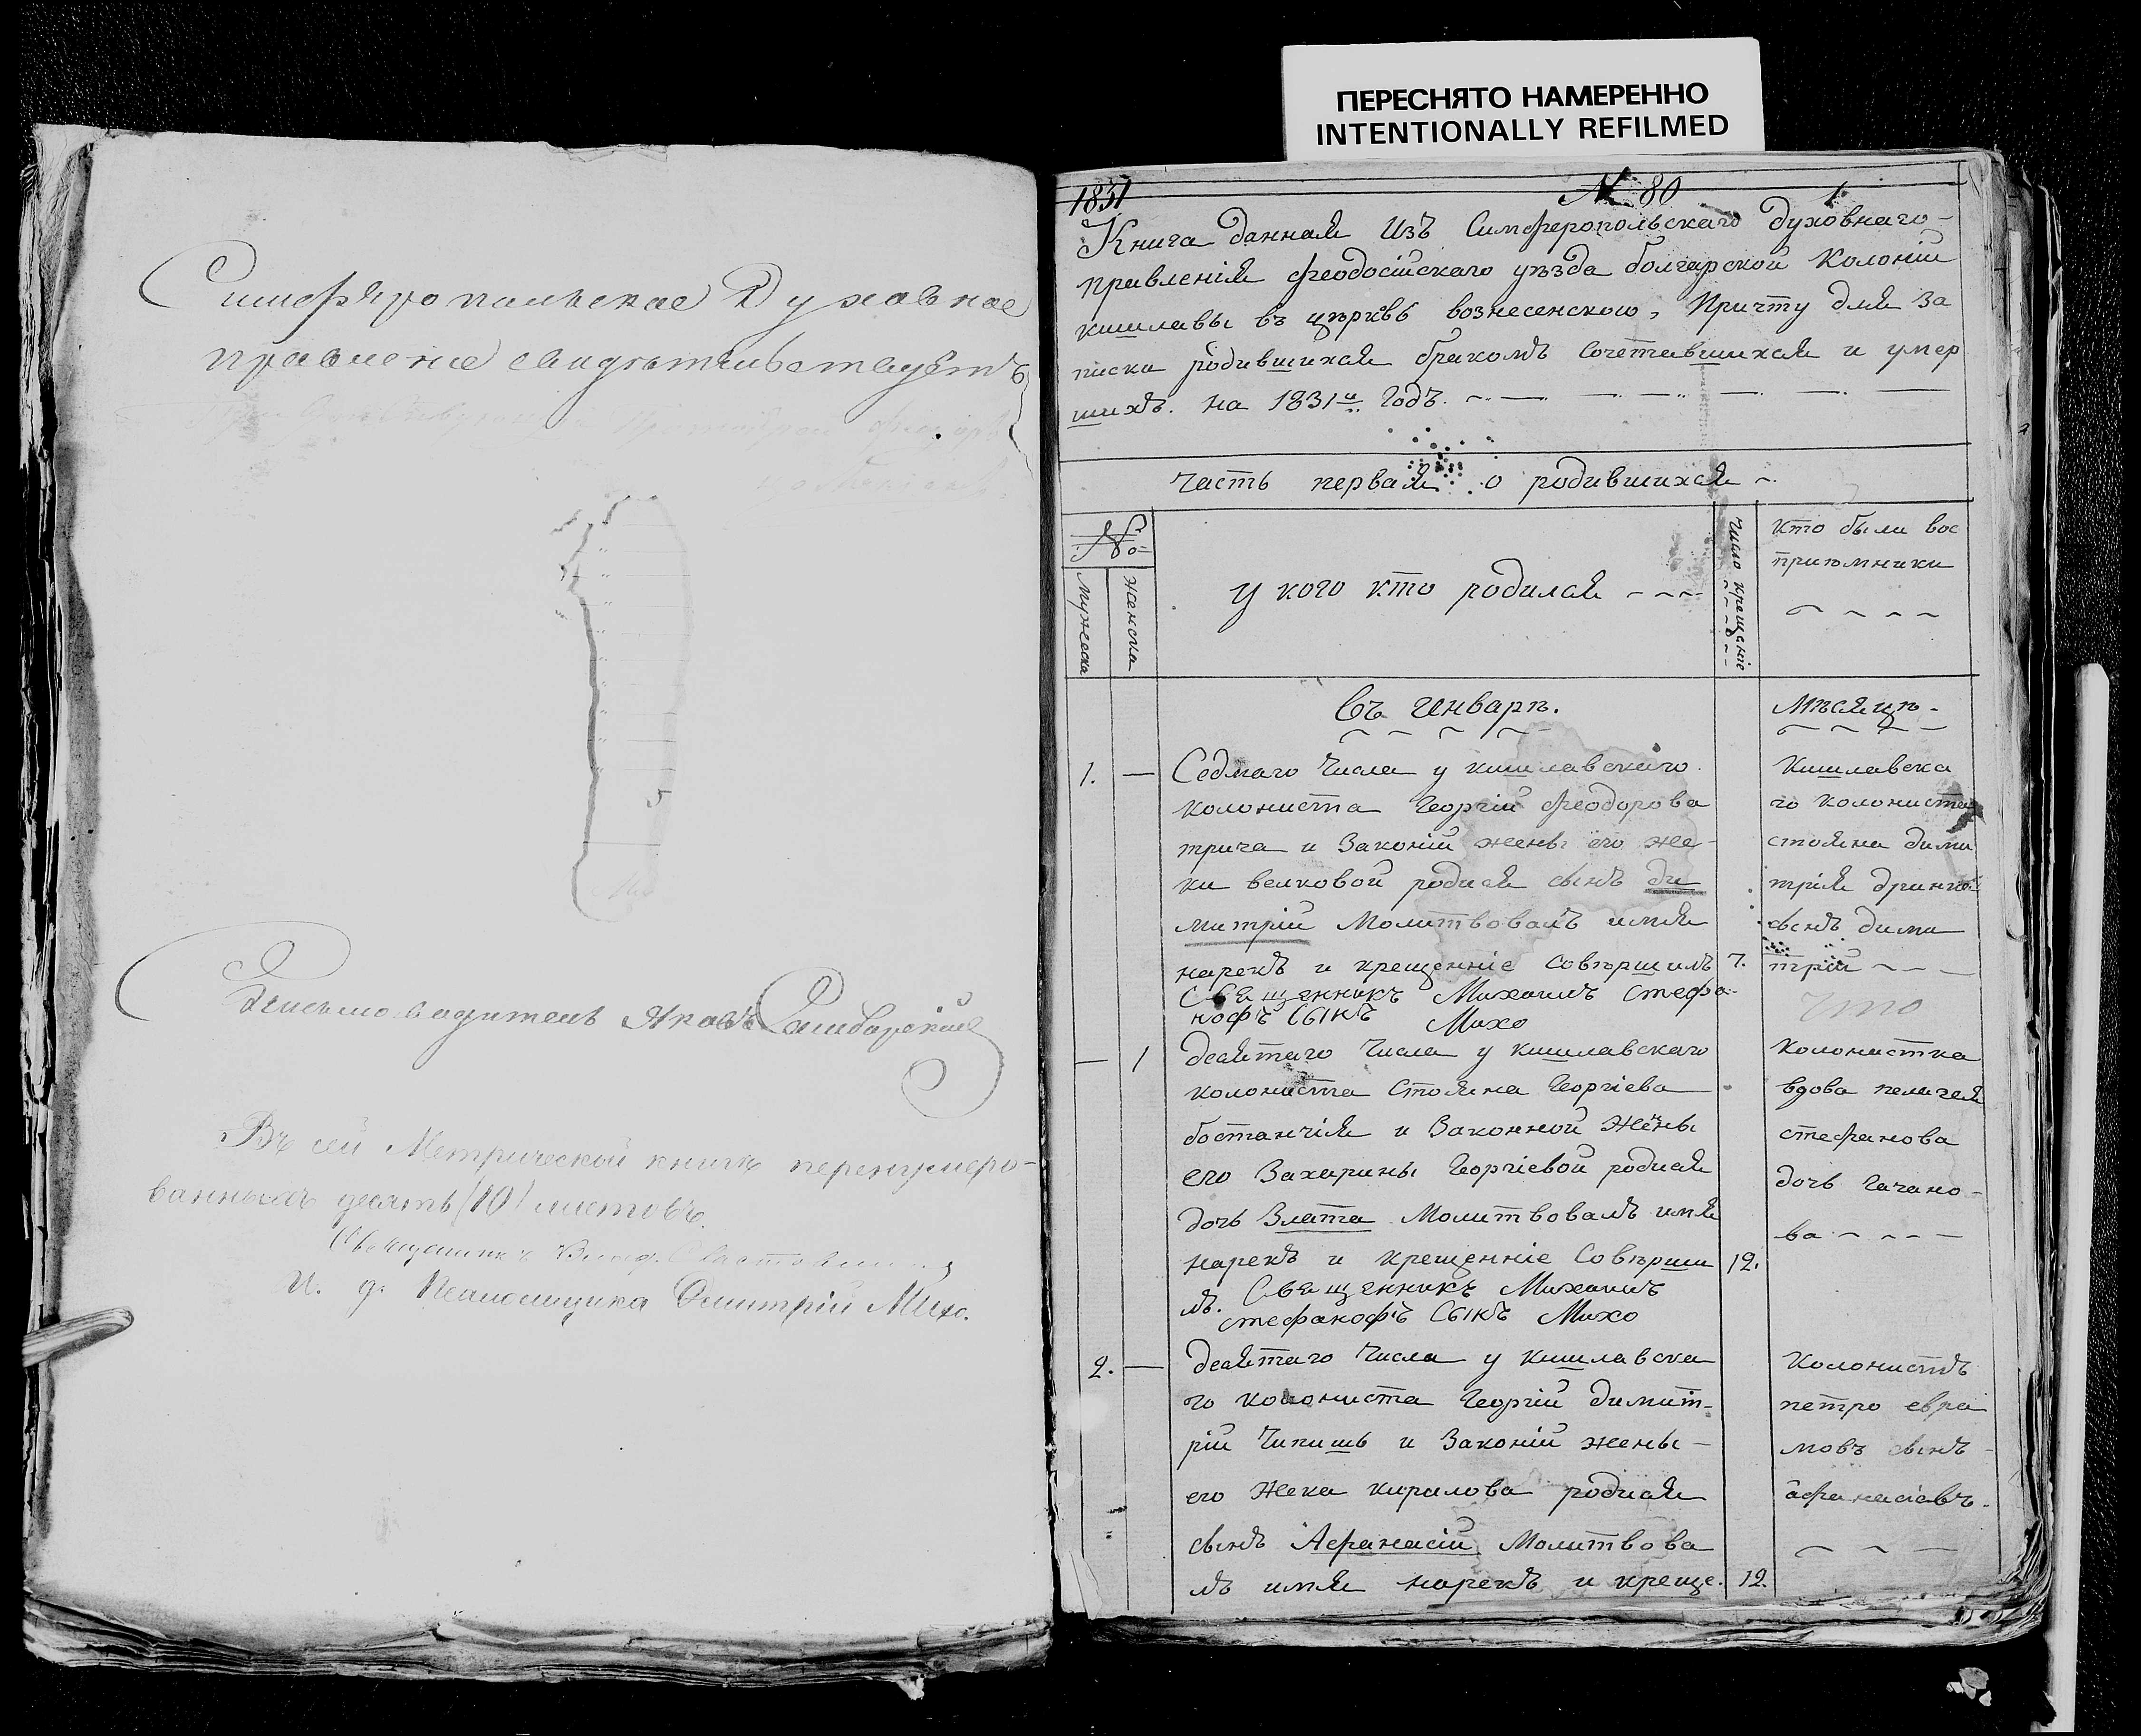 ПЕРЕСНЯТО НАМЕРЕННО
INTENTIONALLY REFILMED
Симферопольское Духовное
правление свидѣтельствуетъ
5
Письмоводитель Яковъ
Въ сей Метрической книгѣ перенумеро-
ванныхъ десять (10) листовъ.
Священникъ
И. д. Псаломщика Димитрій Михо.
1831
№ 80
1
Книга данная Изъ Симферопольскаго духовнаго-
правленія феодосійскаго уѣзда болгарской Колоніи
кишлавы въ церквѣ вознесенскою, Причту для за
писки родившихся бракомъ сочетавшихся и умер
шихъ. на 1831й Годъ.
Часть первая о родившихся
№
мужеска
женска
у кого кто родился
число крещеніе
Кто были вос
приемники
въ генварѣ.
Мѣсяцѣ-
1. — Седмаго числа у кишлавскаго
колониста Георгіи феодорова
трича и Законіи жены его же-
ки велковой родися сынъ ди
митрій Молитвовалъ имя
нарекъ и крещенніе совѣршилъ 7.
Священникъ Михаилъ стефа-
нофъ сынъ Михо
Кишлавска
го колониста
стояна дими
трія
сынъ дими
трій
что
— 1 десятаго числа у кишлавскаго
колониста Стояна Георгіева
бостанчія и Законной Жены
его Захарины Георгіевой родися
дочь Злата Молитвовалъ имя
нарекъ и крещенніе Совѣрши 12.
лъ. Священникъ Михаилъ
стефанофъ Сынъ Михо
Колонистка
вдова пелагея
стефанова
дочь гачано-
ва
2. — десятаго числа у кишлавска
го колониста Георгіи димит-
рій Чипишь и Законіи жены-
его Жека кирилова родися
сынъ Афанасіи Молитвова
лъ имя нарекъ и креще. 12.
Колонистъ
петро евра
мовъ сынъ
афанасіевъ.